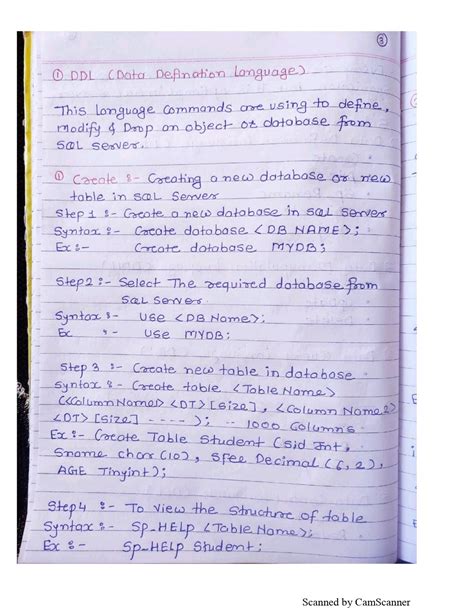 3
① DDL (Data Defination Language)
This language commands are using to define,
modify & Drop an object or database from
SQL server.
① Create :- Creating a new database or new
table in SQL Server
Step 1 :- Create a new database in SQL server
Syntax :- Create database <DB NAME>;
Ex :- Create database MYDB;
Step2 :- Select The required database from
SQL Server.
Syntax :- USE <DB Name>;
Ex :- USE MYDB;
Step 3 :- Create new table in database
Syntax :- Create table <Table Name>
(<Column Name1> <DT> [Size], <Column Name2>
<DT> [Size] ---- ); -- 1000 Columns
Ex :- Create Table Student (Sid Int,
Sname char (10), Sfee Decimal (6, 2),
AGE Tinyint);
Step4 :- To View the Structure of table
Syntax :- Sp-HELP <Table Name>;
Ex :- Sp-HELP Student;
Scanned by CamScanner